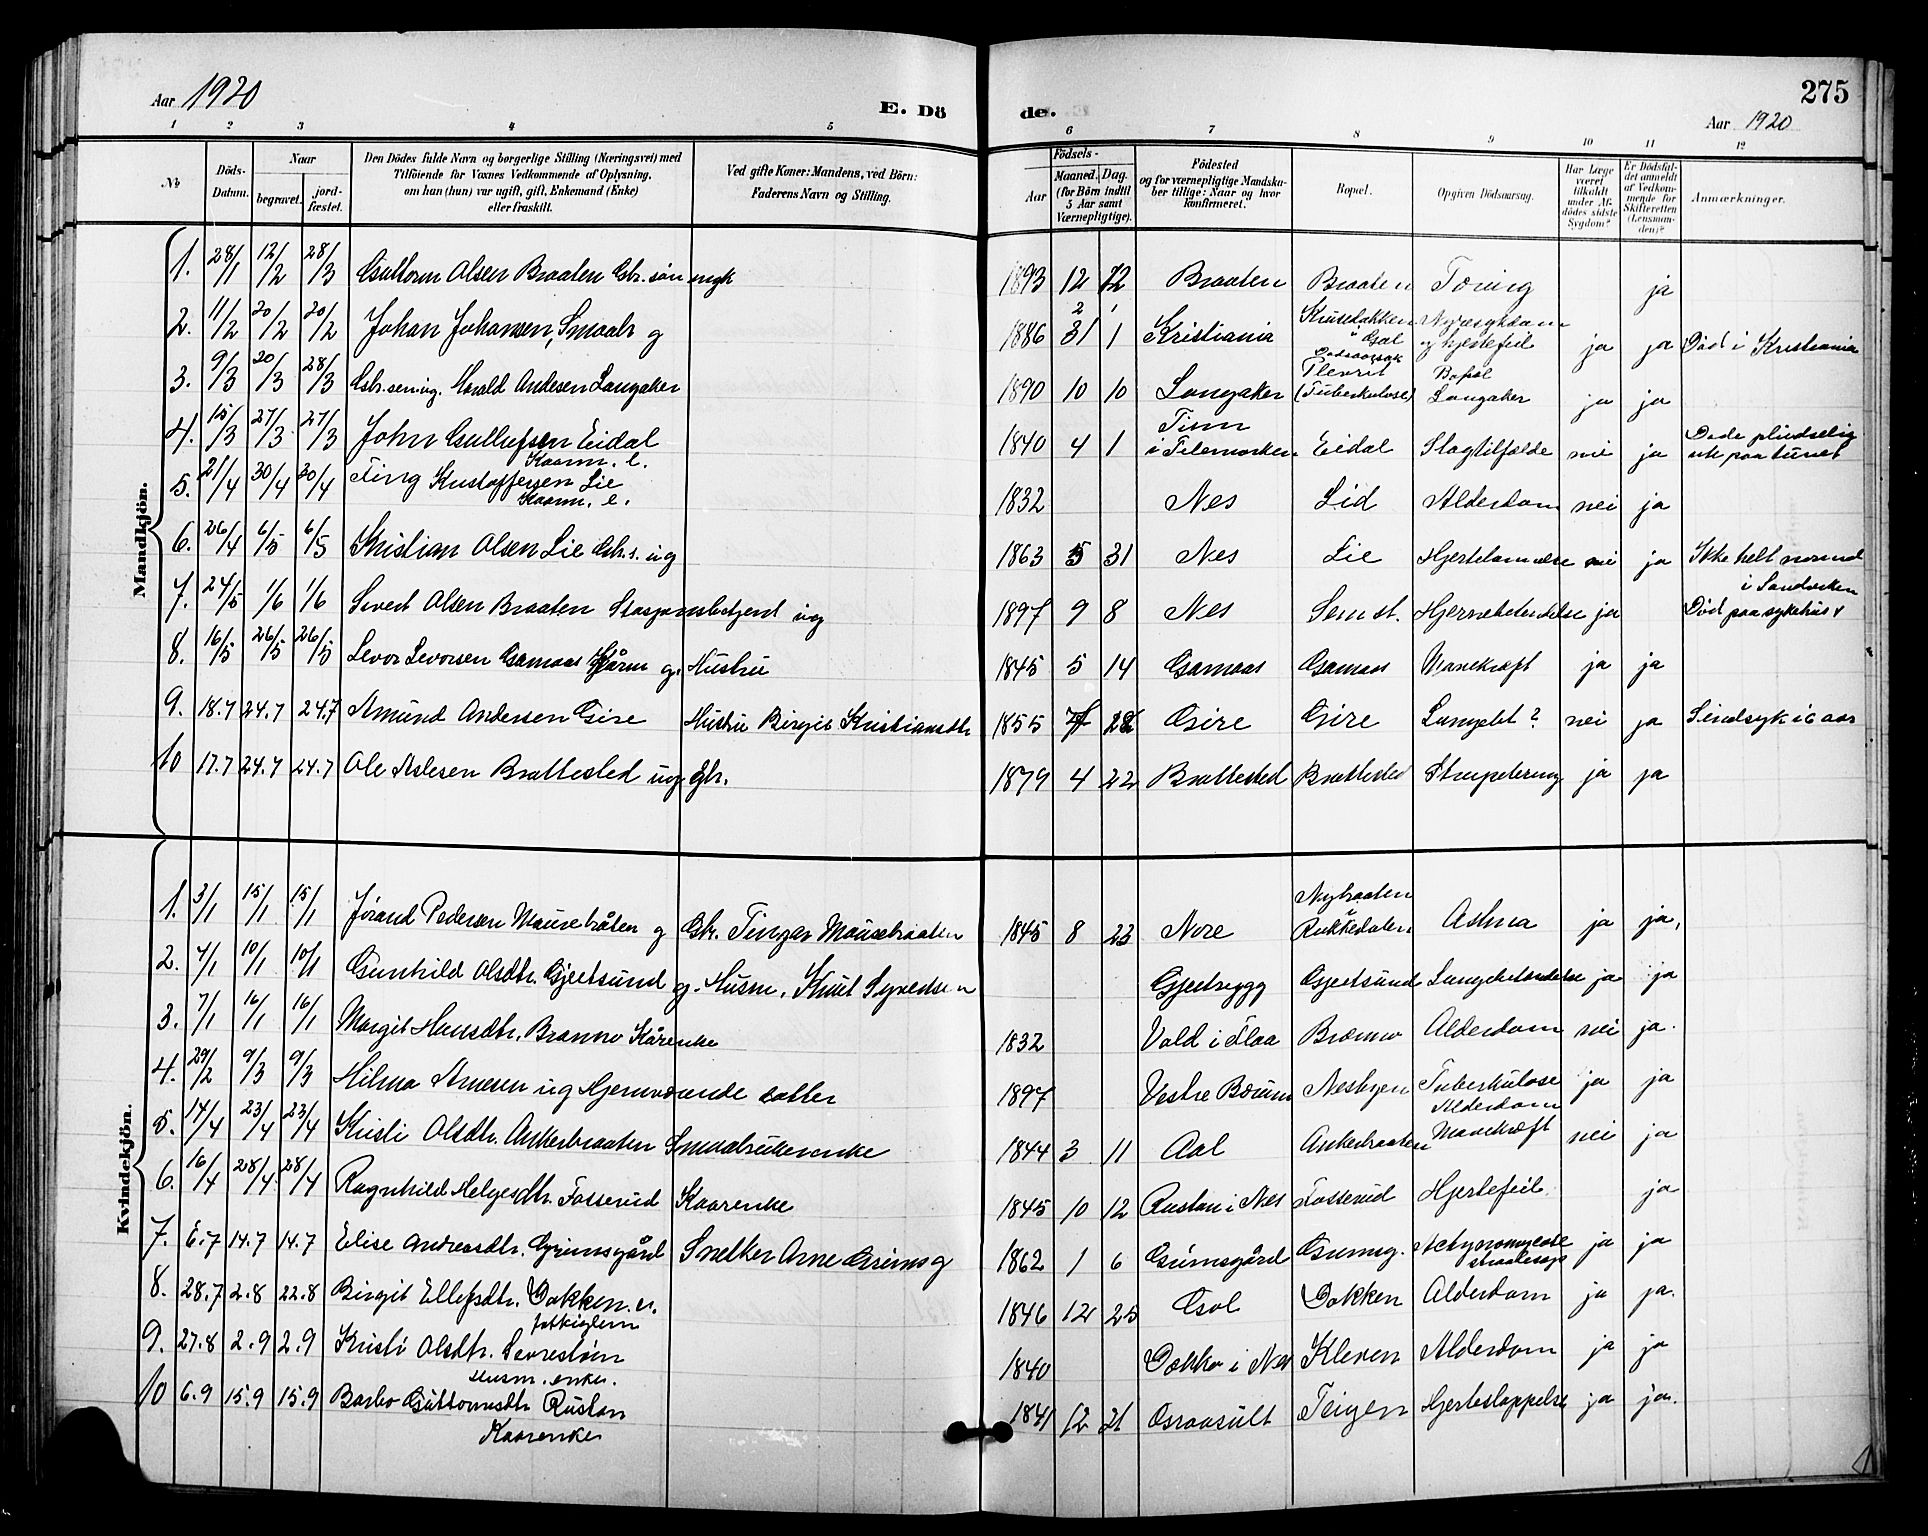 Aar 1920 E. Dö de. 275
Aar 1920
1 2 3 4 5 6 7 8 9 10 11 12
No Döds-Datum. Naar begravet. jordfæstet. Den Dödes fulde Navn og borgerlige Stilling (Næringsvei) med Tilföiende for Voxnes Vedkommende af Oplysning, om han (hun) var ugift, gift, Enkemand (Enke) eller fraskilt. Ved gifte Koner: Mandens, ved Börn: Faderens Navn og Stilling. Födsels- Aar Maaned. Dag. (for Börn indtil 5 Aar samt Værnepligtige). Födested og for værnepligtige Mandskaber tillige: Naar og hvor konfirmeret. Bopæl. Opgiven Dödsaarsag. Har Læge været tilkaldt under Afdödes sidste Sygdom? Er Dödsfaldet anmeldt af Vedkommende for Skifteretten (Lensmanden)? Anmærkninger.
Mandkjön.
1. 28/1 12/2 28/3 Guttorm Olsen Braaten Gbr. sön ugk 1893 12 12 Braaten Braaten Tæring ja
2. 11/2 20/2 20/2 Johan Johansen, Smaabr g 1886 31 1 Kristiania Krusedokken i Gol Nyresykdom og hjertefeil ja ja Död i Kristiania
3. 9/3 20/3 28/3 Gbr. sen ug. Harald Andersen Langaker 1890 10 10 Langaker Dødsaarsak Plevrit (Tuberkulose) Bopæl Langaker ja ja
4. 15/3 27/3 27/3 John Gullufsen Eidal Kaarm. e. 1840 4 1 Tinn i Telemarken Eidal Slagtilfælde nei ja Døde pludselig ute paa tunet
5. 21/4 30/4 30/4 Ting Kristoffersen Lie Kaarm. e. 1832 Nes Lid Alderdom nei ja
6. 26/4 6/5 6/5 Kristian Olsen Lie Gbr. s. ug 1863 5 31 Nes Lie Hjertelammelse nei ja Ikke helt normal
7. 24/5 1/6 1/6 Severt Olsen Braaten Stasjonsbetjent ug 1897 9 8 Nes Semst. Hjernebetendelse ja Död paa sykehus i Sandviken
8. 16/5 26/5 26/5 Levor Levorsen Gamaas Kårm g. Hustru 1845 5 14 Gamaas Gamaas Mavekræft ja ja
9. 18.7 24.7 24.7 Amund Andersen Gire Hustru Birgit Kristiansdtr 1855 28 Gire Gire Lungebt? nei ja Sindsyk i 6 aar
10 17.7 24.7 24.7 Ole Aslesen Brattested ug. Gbr. 1879 4 22 Brattested Brattested Strupetæring ja ja
Kvindekjön.
1. 3/1 15/1 15/1 Jörand Pedersen Mausebråten g Gbr. Tingar Mousebraaten 1845 8 23 Nore Nybraaten i Rukkedalen Astma ja ja,
2. 4/1 10/1 10/1 Gunhild Olsdtr. Gjertsund g. Husm. Knut Syvertsen Gjeitrygg Gjertsund Lungebetændelse ja ja
3. 7/1 16/1 16/1 Margit Hansdtr. Bromno Kårenke 1832 Vold i Flaa Bromno Alderdom nei ja.
4. 29/2 9/3 9/3 Hilma Arnesen ug Hjemværende datter 1897 Vestre Bærum Nesbyen Tuberkulose ja ja
5. 14/4 23/4 23/4 Kristi Olsdtr. Ankerbraaten Smaabrukerenke 1844 3 11 Aal Ankerbraaten Alderdom Mavekræft nei ja
6. 16/4 28/4 28/4 Ragnhild Helgesdtr. Fosserud Kaarenke 1845 10 12 Rustan i Nes Fosserud Hjertefeil. ja
7. 6.7 14.7 14.7 Elise Andreasdtr. Grimsgård Snekker Arne Grimsg 1862 1 6 Grimsgård Grimsg. Actynomycose ja ja
8. 28.7 2.8 22.8 Birgit Ellefsdtr. Dokken. u. fattiglem 1846 12 25 Gol Dokken Alderdom ja ja.
9. 27.8 2.9 2.9 Kristi Olsdtr. Sevrestöin Husm. enke. 1840 Dokko i Nes Kleven Alderdom ja ja
10 6.9 15.9 15.9 Barbo Guttormsdtr Rustan Kaarenke 1841 12 21 Graasult Teigen Hjerteslappelse ja ja.